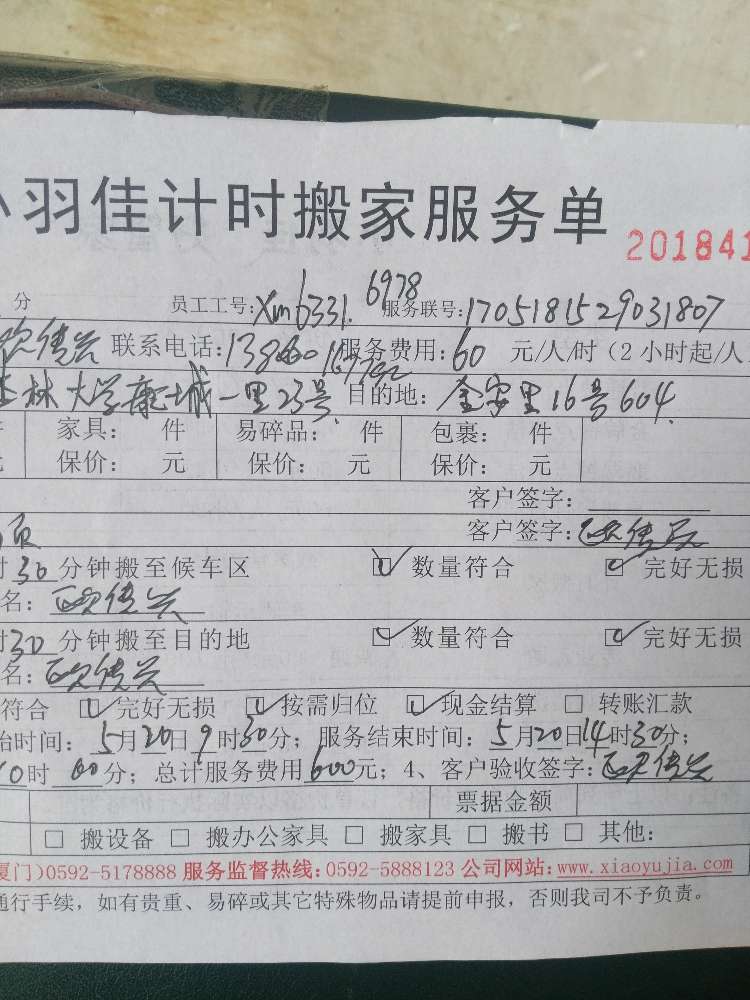 小羽佳计时搬家服务单
201841
分 员工工号: Xm6331. 6978 服务联号: 1705181529031807
欧传兴 联系电话: 服务费用: 60 元/人/时(2小时起/人
林大学康城一里23号 目的地: 金安里16号604
件 家具: 件 易碎品: 件 包裹: 件
元 保价: 元 保价: 元 保价: 元
客户签字:
页 客户签字: 欧传兴
时30分钟搬至候车区 ☑数量符合 ☑完好无损
名: 欧传兴
时30分钟搬至目的地 ☑数量符合 ☑完好无损
名: 欧传兴
符合 ☑完好无损 ☑按需归位 ☑现金结算 □ 转账汇款
始时间: 5月20日9时30分; 服务结束时间: 5月20日14时30分;
10时00分; 总计服务费用600元; 4、客户验收签字: 欧传兴
票据金额
□ 搬设备 □ 搬办公家具 □ 搬家具 □ 搬书 □ 其他:
厦门)0592-5178888 服务监督热线:0592-5888123 公司网站:www.xiaoyujia.com
通行手续，如有贵重、易碎或其它特殊物品请提前申报，否则我司不予负责。